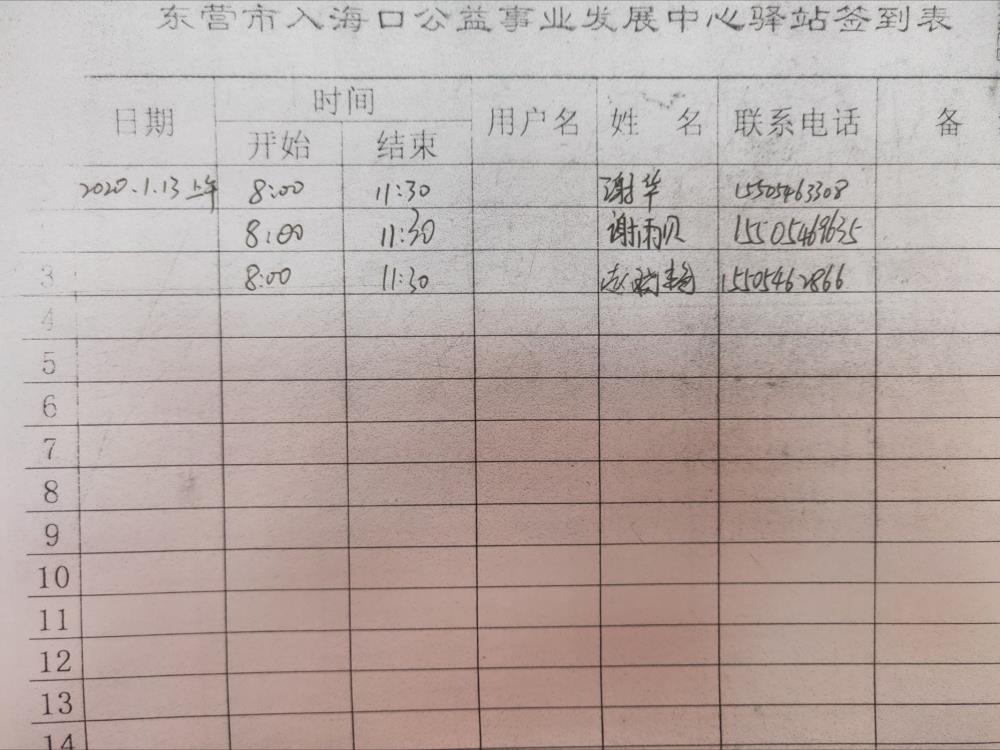 东营市入海口公益事业发展中心驿站签到表
日期 时间 用户名 姓 名 联系电话 备
开始 结束
2020.1.13 上午 8:00 11:30 谢华 15505463308
8:00 11:30 谢雨贝 15505469635
3 8:00 11:30 赵 15505462866
4
5
6
7
8
9
10
11
12
13
14